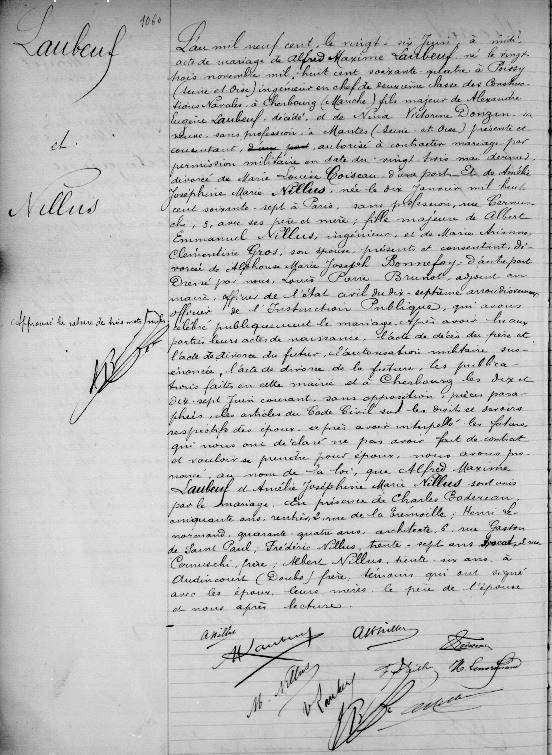 1060
Laubeuf
et
Nillus
Approuvé la rature de trois mots nuls
L'an mil neuf cent, le vingt-six Juin, à midi
acte de mariage de Alfred Maxime Laubeuf né le vingt-
trois novembre mil huit cent soixante quatre à Poissy
(Seine et Oise) ingénieur en chef de deuxième classe des Construc-
tions Navales à Cherbourg (Manche) fils majeur de Alexandre
Eugène Laubeuf décédé, et de Nina Victorine Donzen, sa
veuve, sans profession, à Mantes (Seine et Oise) présente et
consentant, autorisé à contracter mariage par
permission militaire en date du vingt trois mai dernier,
divorcé de Marie Louise Coiseau, d'une part. Et de Amélie
Joséphine Marie Nillus, née le dix Janvier mil huit
cent soixante-sept à Paris, sans profession, rue
3, avec ses père et mère; fille majeure de Albert
Emmanuel Nillus, ingénieur, et de Marie Arianne
Clémentine Gros, son épouse, présents et consentant, di-
vorcée de Alphonse Marie Joseph Bonnefoy. D'autre part
Dressé par nous, Louis Pierre Brunot, adjoint au
maire, officier de l'état civil du dix-septième arrondissement,
officier de l'Instruction Publique, qui avons
célébré publiquement le mariage, après avoir lu aux
parties leurs actes de naissance, l'acte de décès du père et
l'acte de divorce du futur, l'autorisation militaire sus-
énoncée, l'acte de divorce de la future, les publica-
tions faites en cette mairie et à Cherbourg les dix et
dix-sept Juin courant, sans opposition, pièces para-
phées, les articles du Code Civil sur les droits et devoirs
respectifs des époux. et après avoir interpellé les futurs,
qui nous ont déclaré ne pas avoir fait de contrat
et vouloir se prendre pour époux, nous avons pro-
noncé, au nom de la loi, que Alfred Maxime
Laubeuf et Amélie Joséphine Marie Nillus sont unis
par le mariage. En présence de Charles
cinquante ans, rentier, 2 rue de la Trémoille; Henri Le-
normand, quarante quatre ans, architecte 6, rue Gaston
de Saint Paul, Frédéric Nillus, trente-sept ans avocat, rue
Cernuschi, frère; Albert Nillus, trente six ans, à
Audincourt (Doubs) frère, témoins qui ont signé
avec les époux, leurs mères, le père de l'épouse
et nous après lecture.
A Nillus
Laubeuf
M. Nillus
V. Laubeuf
H. Lenormand